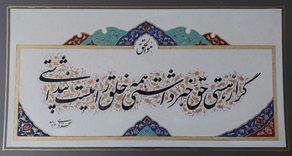 هوالحق
گر از هستی حق خبر داشتی همه خلق را نیست پنداشتی